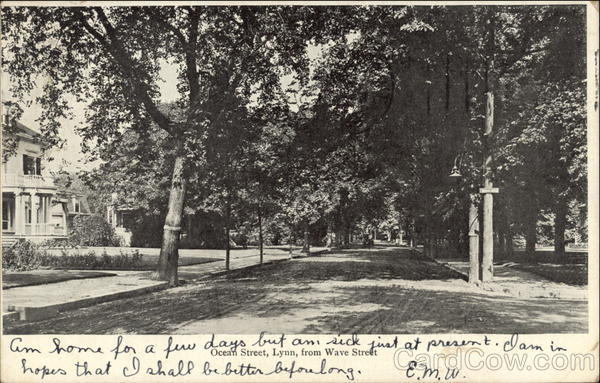 Am home for a few days but am sick just at present. I am in
Ocean Street, Lynn, from Wave Street
hopes that I shall be better befou long. E. M. W.
CardCow.com